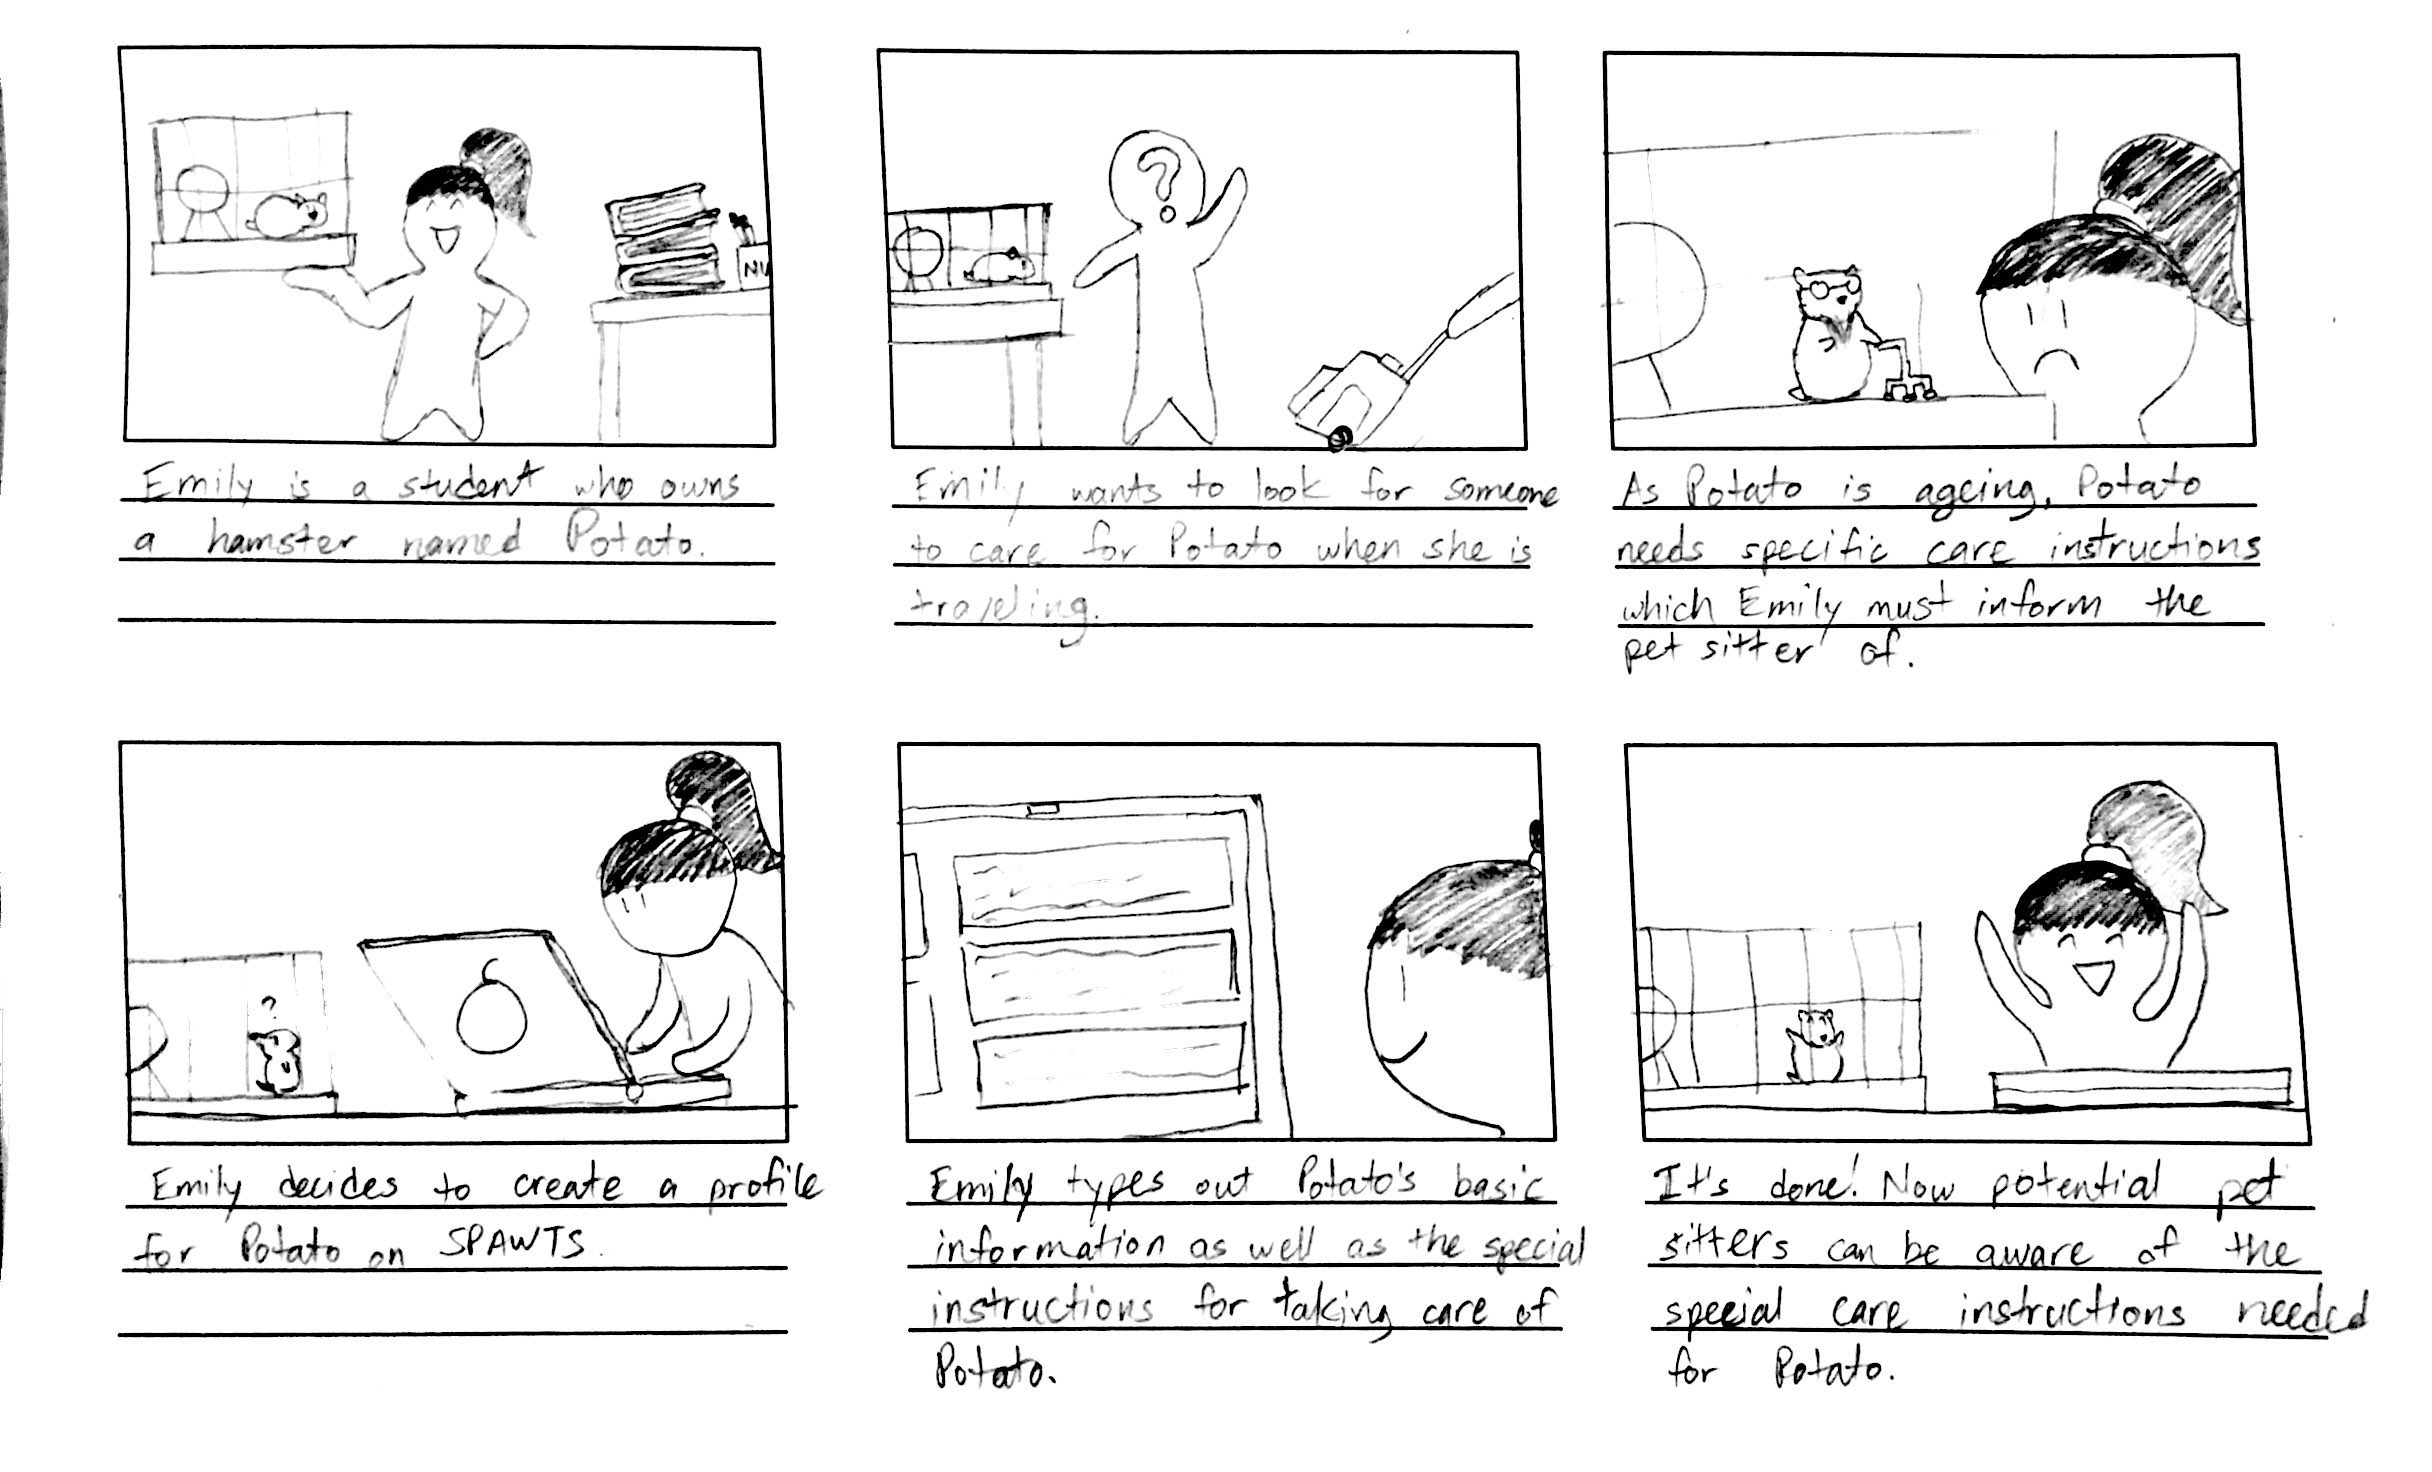 NU
?
Emily is a student who owns
a hamster named Potato.
Emily wants to look for someone
to care for Potato when she is
traveling.
As Potato is ageing, Potato
needs specific care instructions
which Emily must inform the
pet sitter of.
?
Emily decides to create a profile
for Potato on SPAWTS.
Emily types out Potato's basic
information as well as the special
instructions for taking care of
Potato.
It's done! Now potential pet
sitters can be aware of the
special care instructions needed
for Potato.